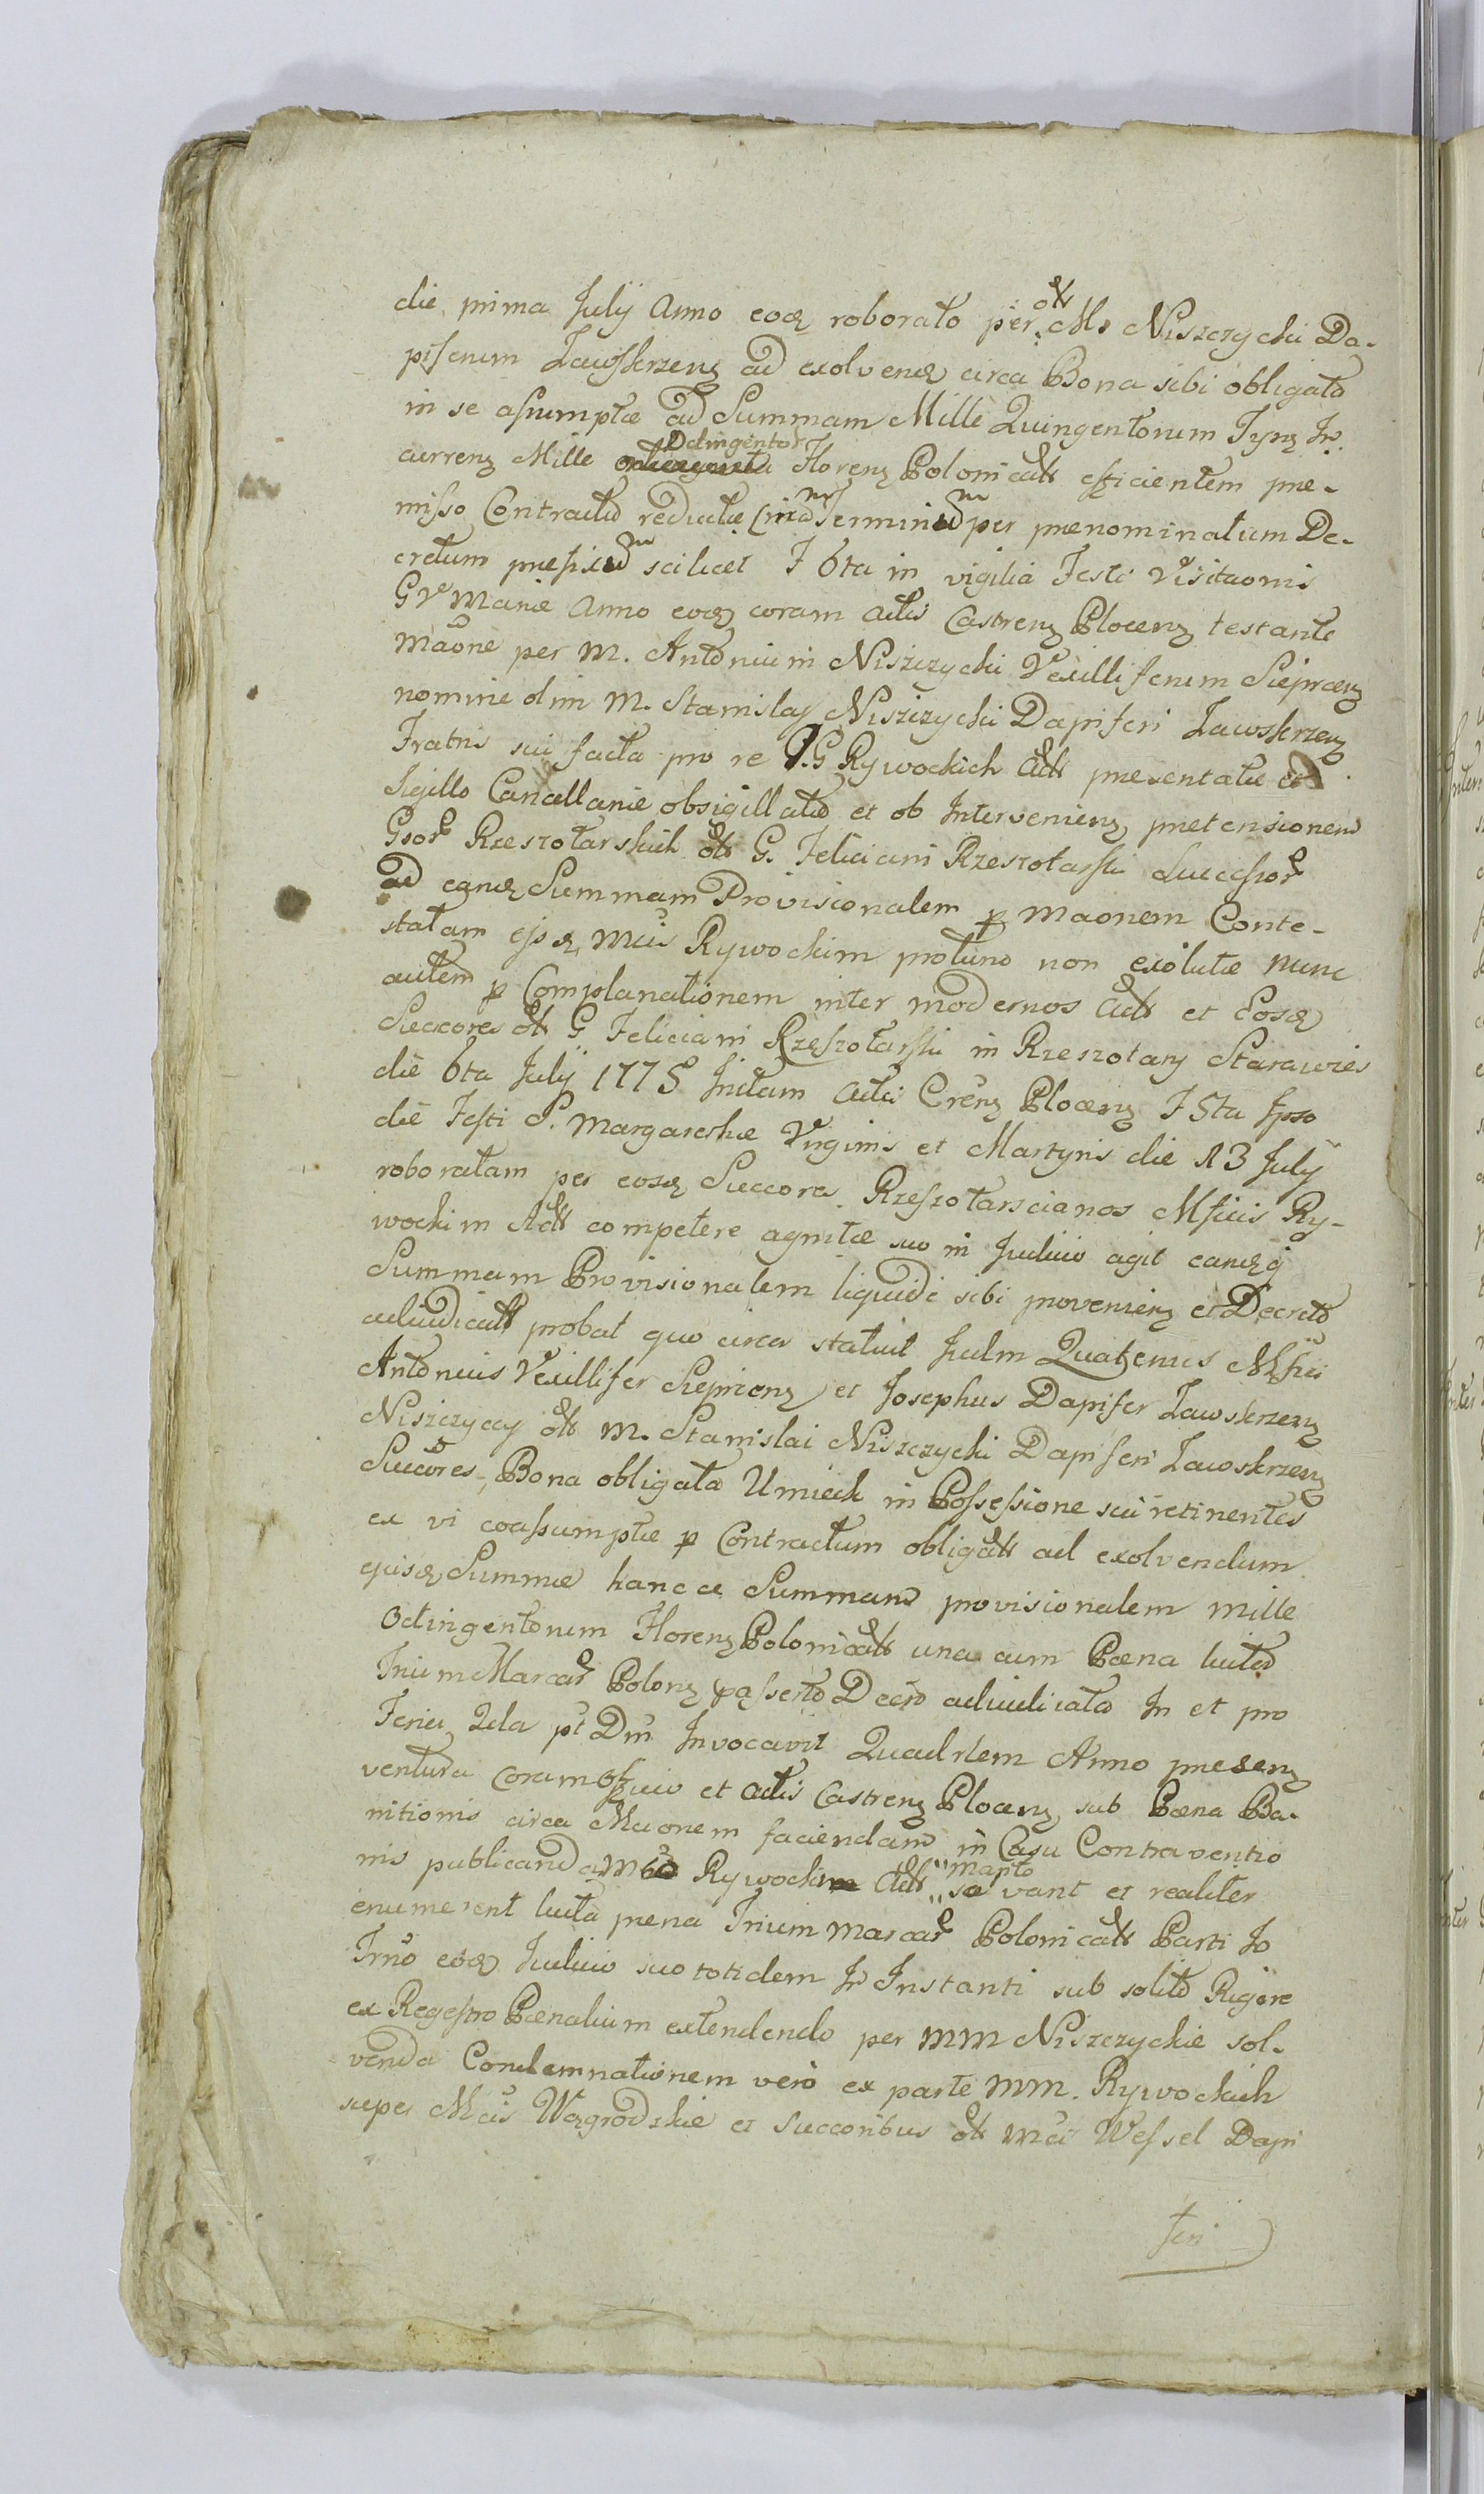 die prima Julij Anno eodē roborato per olt M. Niszczycki Da-
piferum Zawskrzenz ad exolvend circa Bona sibi obligata
in se assumptæ ad Summam Mille Quingentorum Tynz In
currenz Mille Octingentor Florenz Polonicalt efficientem pre-
misso Contractu reductæ Terminum per prænominatum De-
cretum prefixum scilicet F 6ta in vigilia Festi Visitaonis
GV Mariæ Anno eodē coram Actis Castrenz Plocenz testante
Maone per M. Antonium Niszczycki Vexilliferum Sieprcenz
nomine olim M. Stanislaj Niszczycki Dapiferi Zawskrzenz
Fratris sui facta pro re G Rywockich Actt presentatæ et
Sigillo Cancellariæ obsigillata et ob Intervenienz pretensionem
Gsor Rzeszotarskich olt G. Feliciani Rzeszotarski Successor
ad eandē Summam Provisionalem p Maonem Conte-
statam ejsdē Mcis Rywockim protunc non exolutæ nunc
autem p Complanationem inter modernos Actt et Eosdē
Succores olt G. Feliciani Rzeszotarski in Rzeszotary Starawies
die 6ta Julij 1775 Initam Actis Crenz Plocenz F 5ta Ipso
die Festi S. Margarethæ Virginis et Martyris die 13 Julij
roboratam per eosdē Succores Rzeszotarscianos Mficis Ry-
wockim Actt competere agnitæ suo in Judicio agit eandēq
Summam Provisionalem liquide sibi provenienz et Decreto
adiudicatt probat quo circa statuit Judm Quatenus Mfici
Antonius Vexillifer Sieprcenz et Josephus Dapifer Zawskrzenz
Niszczyccy olt M. Stanislai Niszczycki Dapiferi Zawskrzenz
Succores, Bona obligata Umieck in Possessione sui retinentes
ex vi coassumptæ p Contractum obligatt ad exolvendum
ejusdē Summæ hancce Summam provisionalem mille
Octingentorum Florenz Polonicalt una cum Pæna luita
Trium Marcar Polonz passerto Decro adiudicata In et pro
Feria 2da pt Dm Invocavit Quadrlem Anno presenz
ventura coram Officio et Actis Castrenz Plocenz sub Pæna Ba-
nitionis circa Maonem faciendam in Casu Contraventio
nis publicanda Mcis Rywockim Actt vant et realiter
enumerent luita pena Trium marcar Polonicalt Parti In
Trno eodē Judicio suo totidem In Instanti sub solito Rigore
ex Regestro Pænalium extendendo per MM Niszczyckie sol-
venda Condemnationem vero ex parte MM. Rywockich
super Mcis Węgrodzkie et Succoribus olt Mci Wessel Dapi
feri